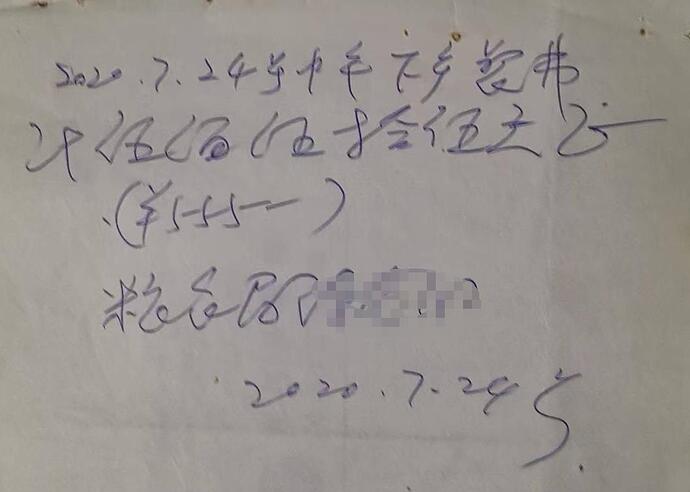 2020.7.24号中午下乡餐费
计伍佰伍拾伍元正
(￥555—)
粮食局
2020.7.24号